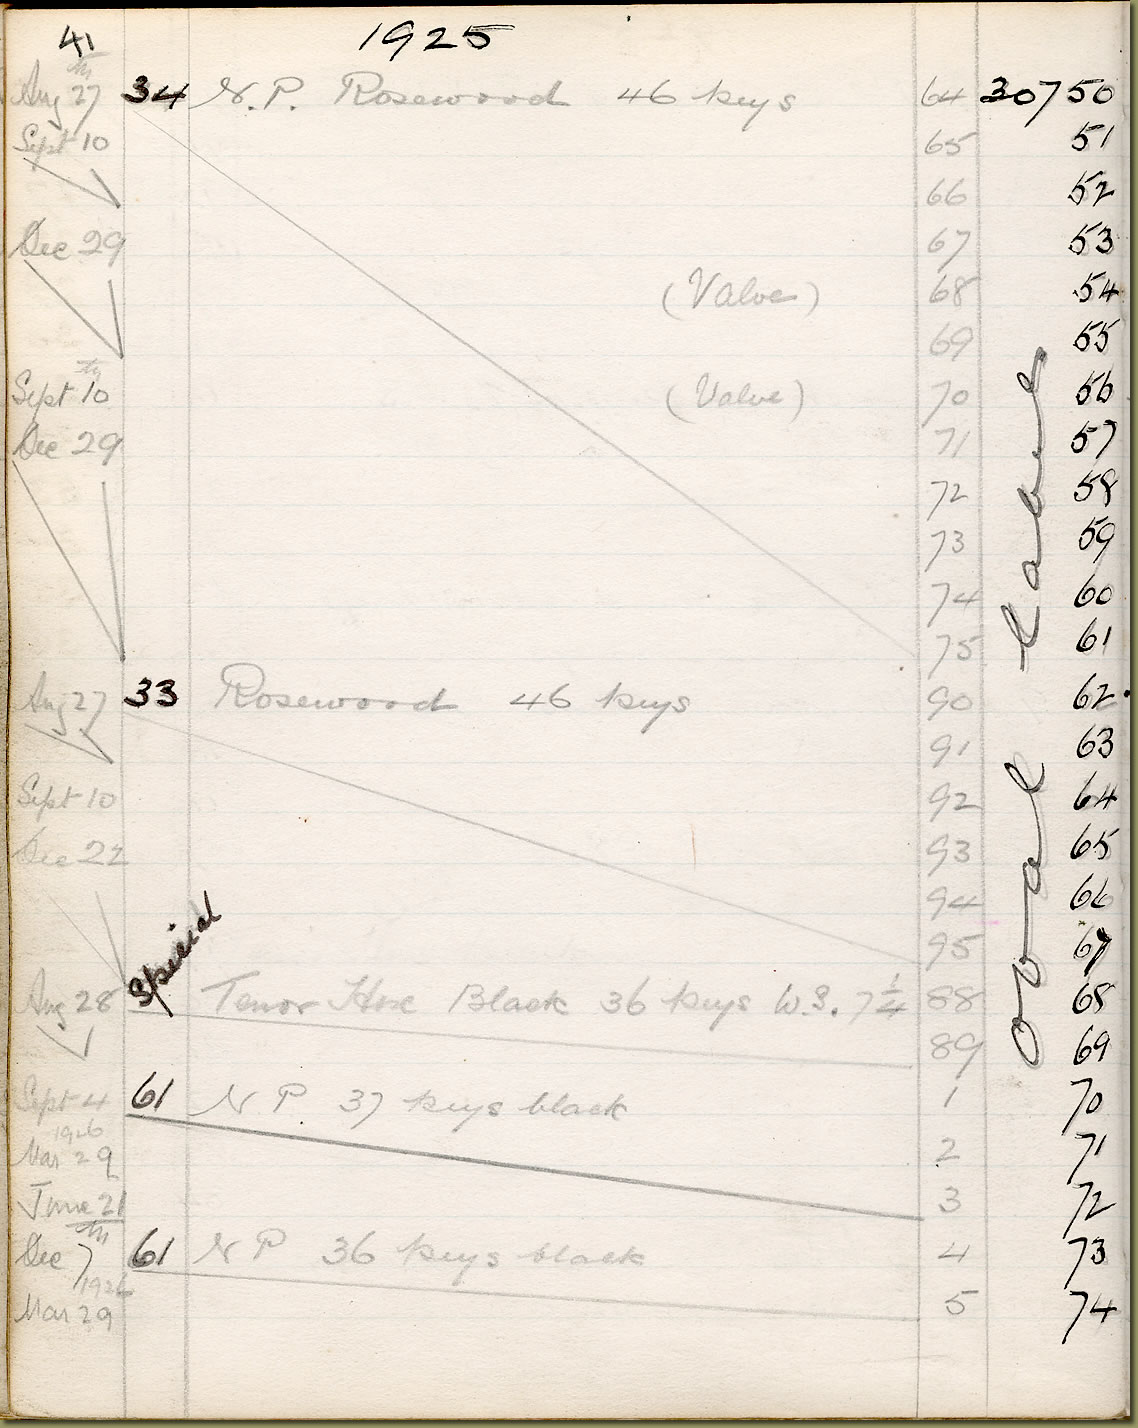 41
1925
Aug 27th 34 N.P. Rosewood 46 keys 64 30750
Sept 10 65 51
66 52
Dec 29 67 53
(Valve) 68 54
69 55
Sept 10th (Valve) 70 56
Dec 29 71 57
72 58
73 59
74 60
75 61
Aug 27 33 Rosewood 46 keys 90 62
91 63
Sept 10 92 64
Dec 22 93 65
94 66
95 67
Aug 28 Special Tenor Hxe Black 36 keys W.S. 7 1/4 88 68
89 69
Sept 4 61 N P 37 keys black 1 70
1926
Mar 29 2 71
June 21 3 72
Dec 7th 61 N P 36 keys black 4 73
1926
Mar 29 5 74
oval label